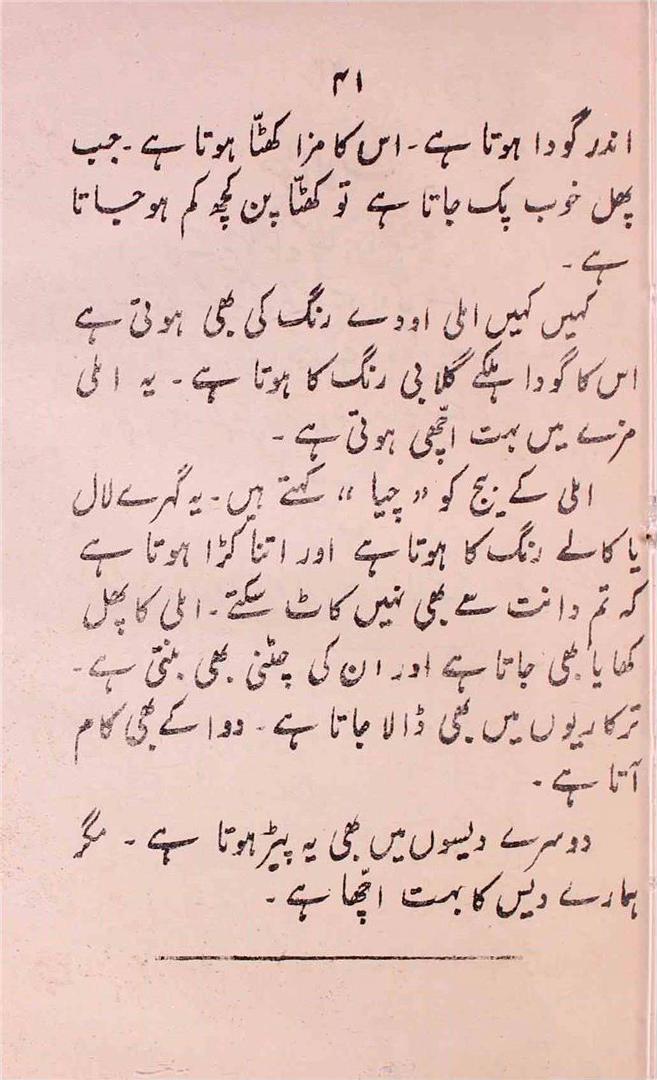 ۴۱
اندر گودا ہوتا ہے۔ اس کا مزا کھٹّا ہوتا ہے۔ جب
پھل خوب پک جاتا ہے تو کھٹّا پن کچھ کم ہو جاتا
ہے۔
کہیں کہیں املی اودے رنگ کی بھی ہوتی ہے
اس کا گودا ہلکے گلابی رنگ کا ہوتا ہے۔ یہ املی
مزے میں بہت اچّھی ہوتی ہے۔
املی کے بیج کو "چیا" کہتے ہیں۔ یہ گہرے لال
یا کالے رنگ کا ہوتا ہے اور اتنا کڑا ہوتا ہے
کہ تم دانت سے بھی نہیں کاٹ سکتے۔ املی کا پھل
کھایا بھی جاتا ہے اور ان کی چٹنی بھی بنتی ہے۔
ترکاریوں میں بھی ڈالا جاتا ہے۔ دوا کے بھی کام
آتا ہے۔
دوسرے دیسوں میں بھی یہ پیڑ ہوتا ہے۔ مگر
ہمارے دیس کا بہت اچّھا ہے۔